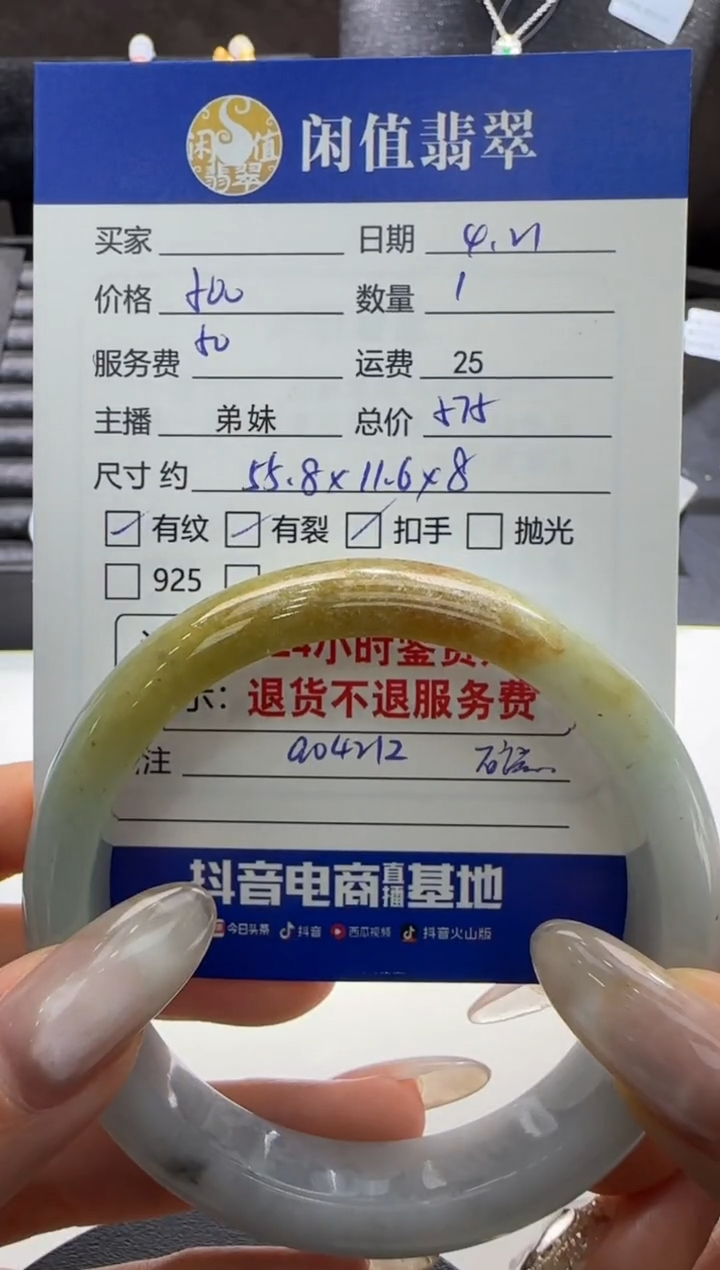 闲值翡翠
闲值翡翠
买家 日期 4.21
价格 500 数量 1
服务费 50 运费 25
主播 弟妹 总价 575
尺寸 约 55.8×11.6×8
有纹 有裂 扣手 抛光
925
24小时鉴赏
示：退货不退服务费
注 a04212
抖音电商直播基地
今日头条 抖音 西瓜视频 抖音火山版